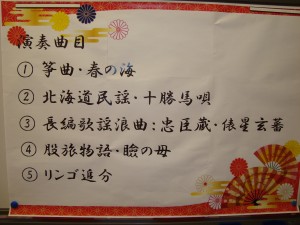 演奏曲目
① 箏曲・春の海
② 北海道民謡・十勝馬唄
③ 長編歌謡浪曲:忠臣蔵・俵星玄蕃
④ 股旅物語・瞼の母
⑤ リンゴ追分